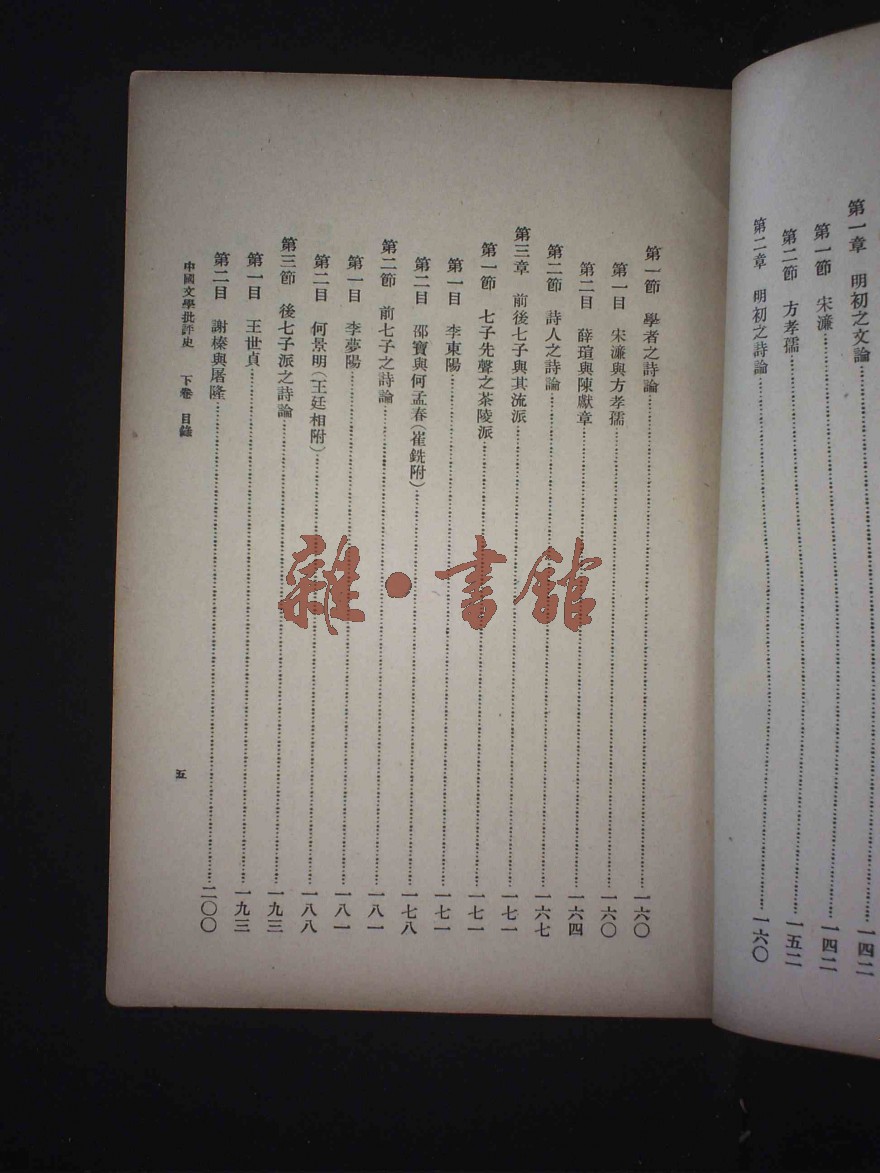 第一章　明初之文論……一四二
第一節　宋濂……一四二
第二節　方孝孺……一五二
第二章　明初之詩論……一六〇
第一節　學者之詩論……一六〇
第一目　宋濂與方孝孺……一六〇
第二目　薛瑄與陳獻章……一六四
第二節　詩人之詩論……一六七
第三章　前後七子與其流派……一七一
第一節　七子先聲之茶陵派……一七一
第一目　李東陽……一七一
第二目　邵寶與何孟春（崔銑附）……一七八
第二節　前七子之詩論……一八一
第一目　李夢陽……一八一
第二目　何景明（王廷相附）……一八八
第三節　後七子派之詩論……一九三
第一目　王世貞……一九三
第二目　謝榛與屠隆……二〇〇
中國文學批評史　下卷　目錄　五
雜·書館